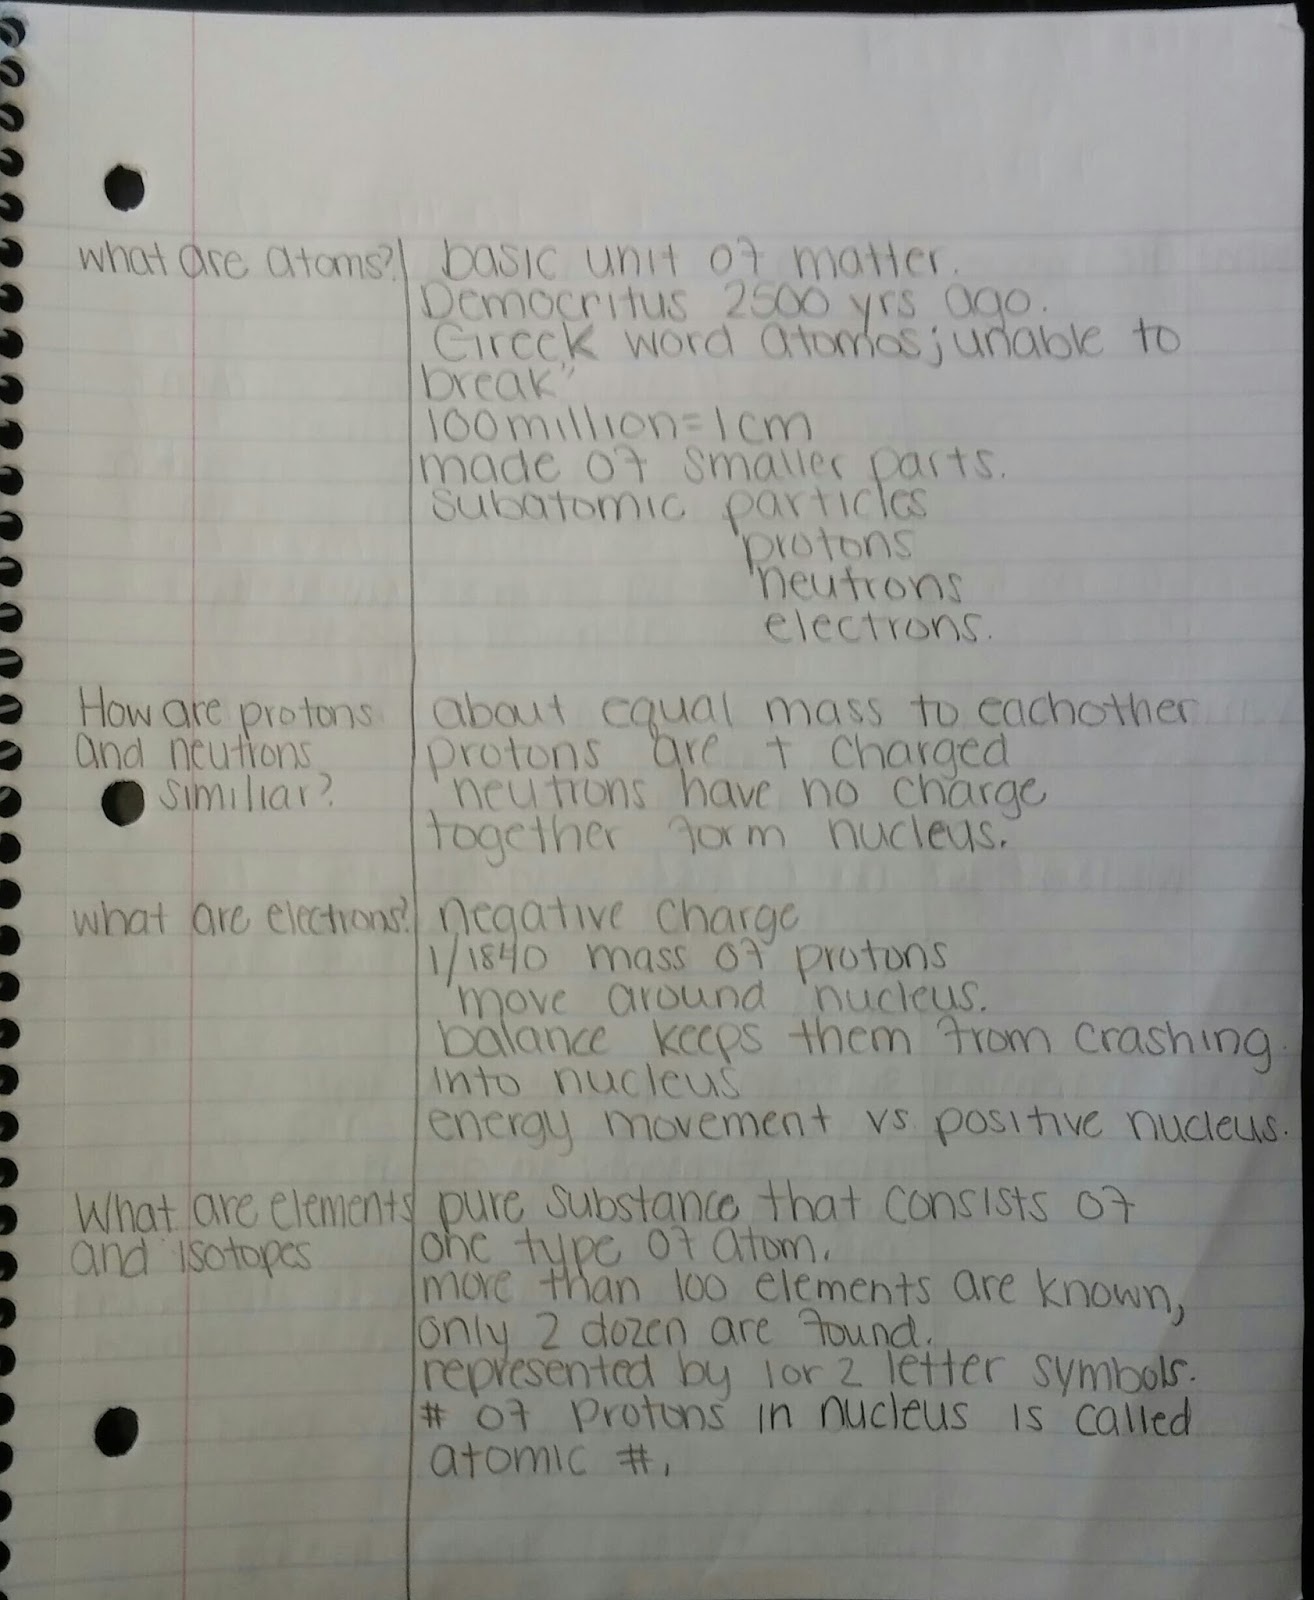 what are atoms? basic unit of matter.
Democritus 2500 yrs ago.
Greek word atomos; unable to
break"
100million=1cm
made of smaller parts.
subatomic particles
protons
neutrons
electrons.
How are protons about equal mass to eachother
and neutrons protons are + charged
similiar? neutrons have no charge
together form nucleus.
what are electrons? negative charge
1/1840 mass of protons
move around nucleus.
balance keeps them from crashing
into nucleus
energy movement vs positive nucleus.
What are elements pure substance that consists of
and isotopes one type of atom.
more than 100 elements are known,
only 2 dozen are found.
represented by 1or 2 letter symbols.
# of protons in nucleus is called
atomic #.